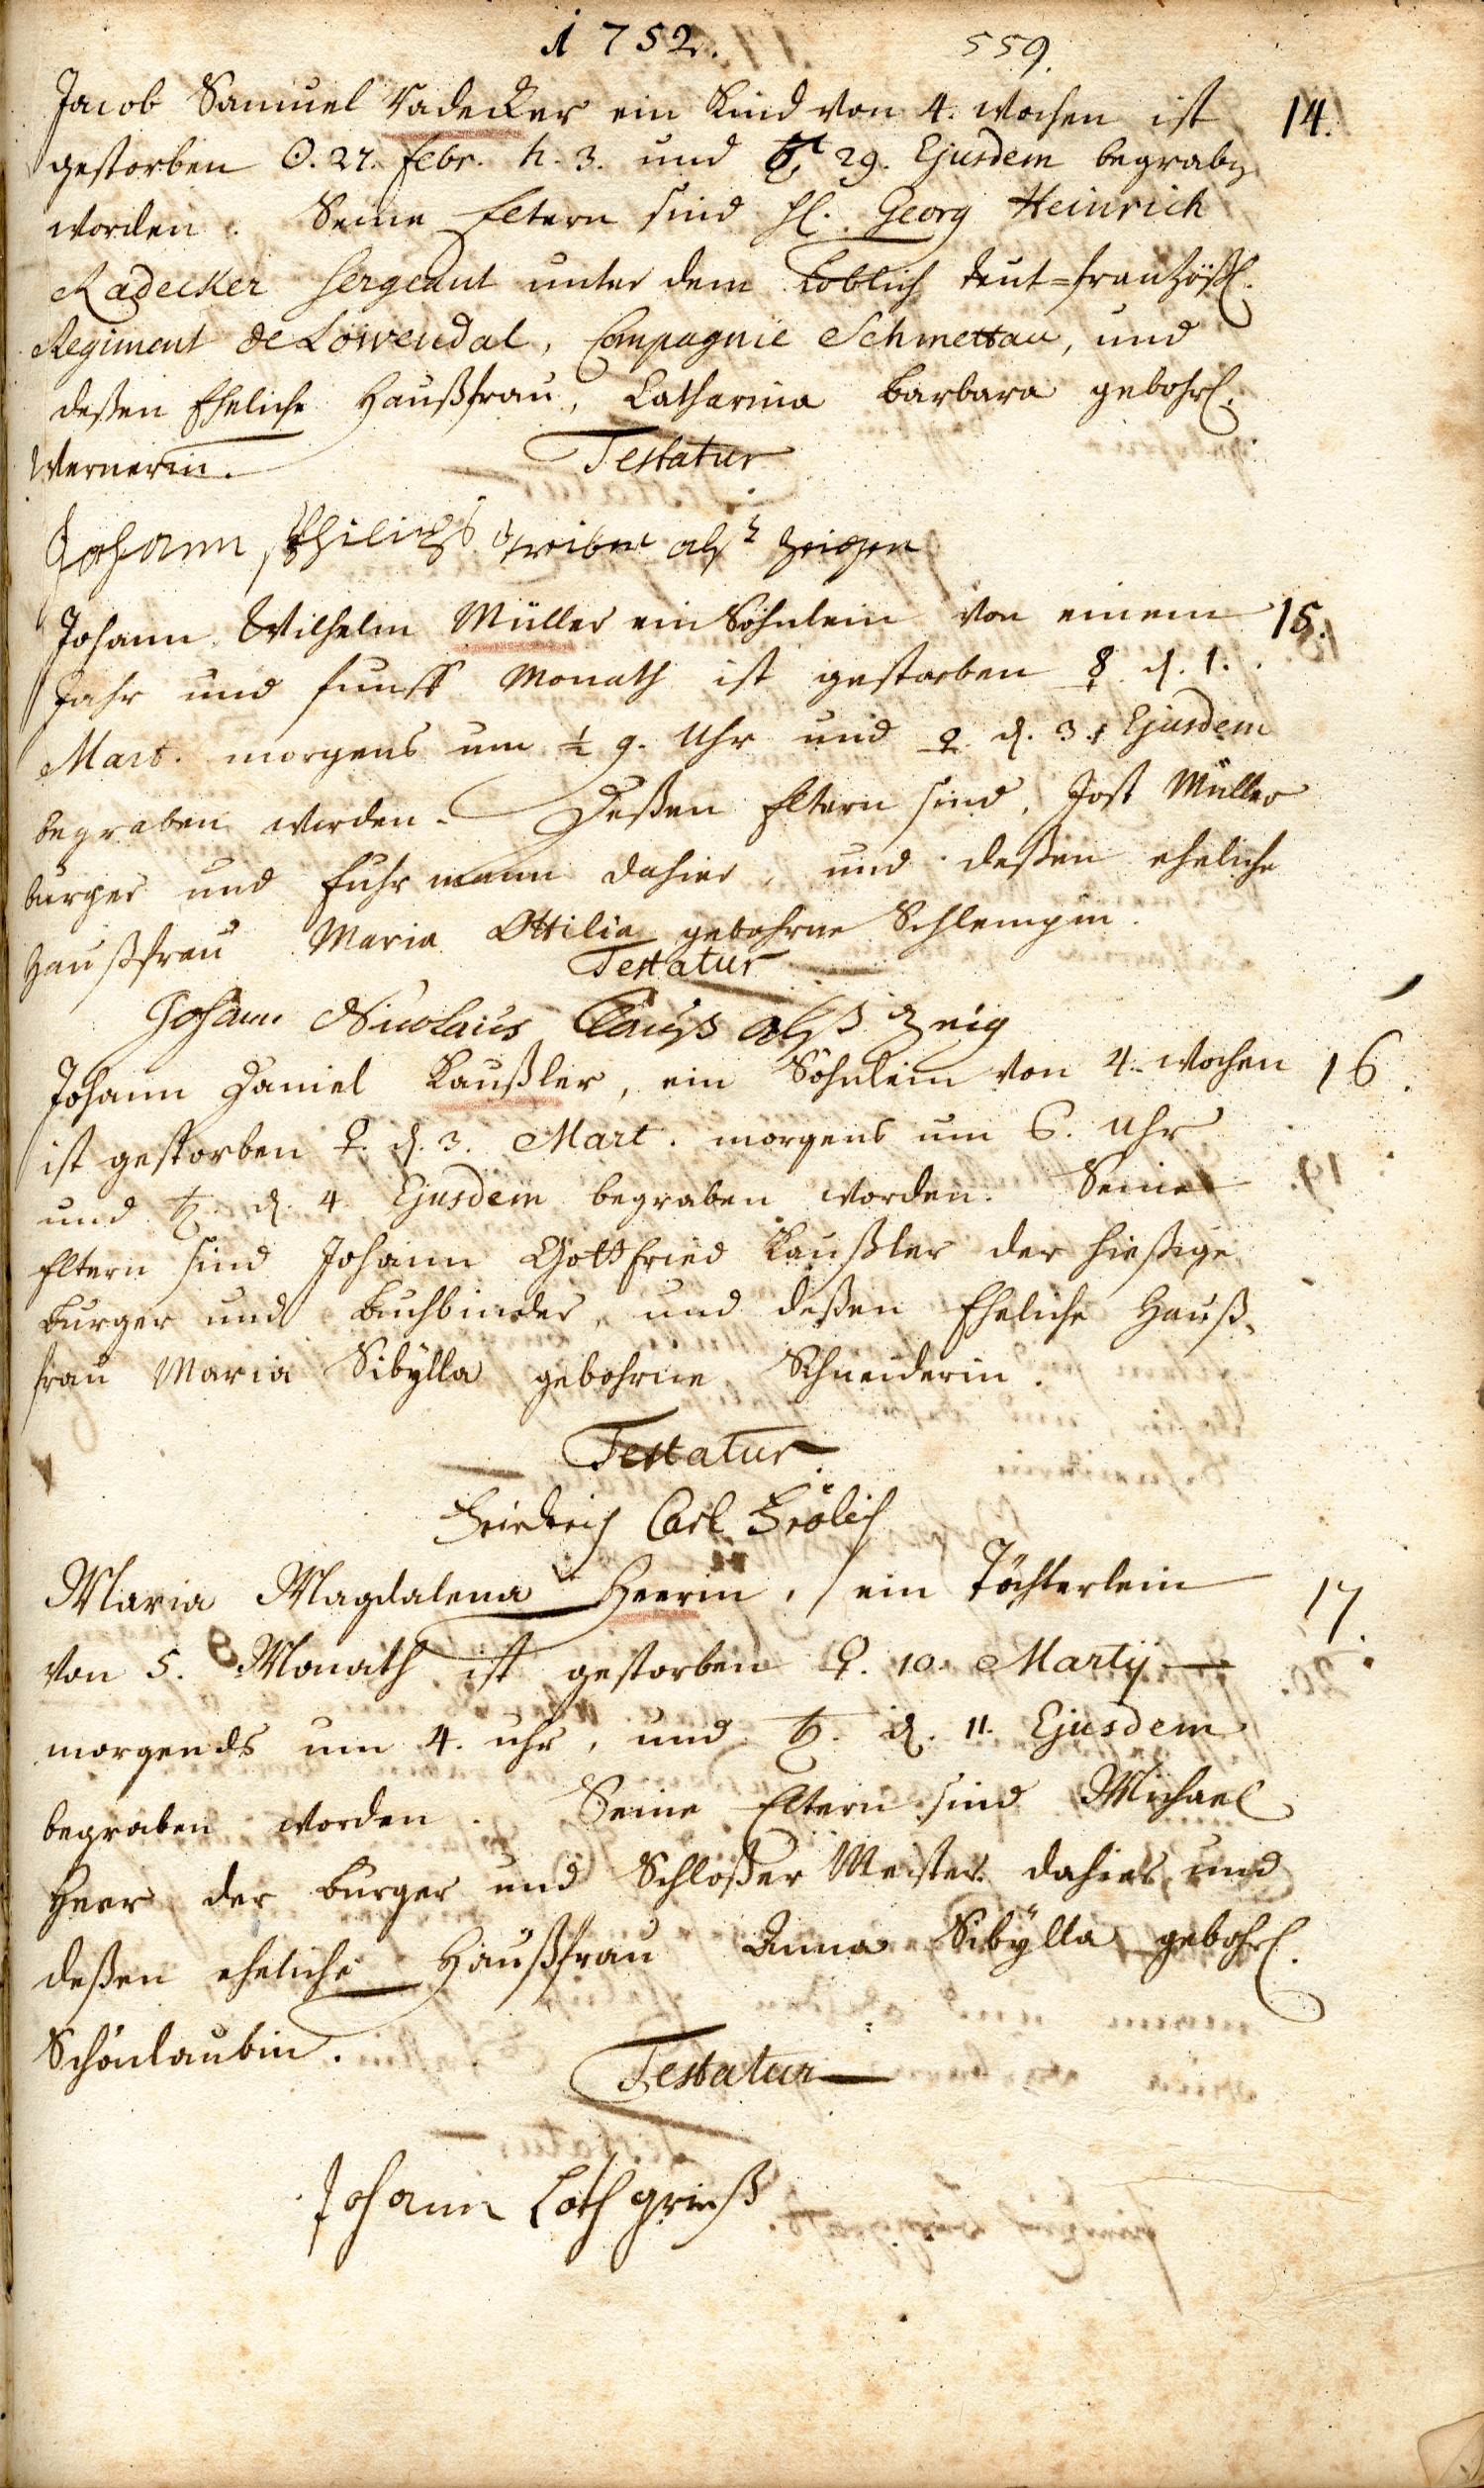 1752.
559.
Jacob Samuel Radecker ein Kind von 4. wochen ist 14.
gestorben ☉. 27. Febr. h. 3. und ♂ 29. Ejusdem begrabē
worden. Seine Eltern sind H. Georg Heinrich
Radecker Sergeant unter dem Löblich teut=Französ.
Regiment de Löwendal, Compagnie Schmettau, und
deßen Eheliche Haußfrau, Catharina Barbara gebohr.
Wernerin. Testatur
Johann Philipß als Zeigen
Johann Wilhelm Müller ein Söhnlein von einem 15.
Jahr und funff Monath ist gestorben ☿ d. 1.
Mart. morgens um ½ 9. Uhr und ♀ d. 3. Ejusdem
begraben worden. Deßen Eltern sind, Jost Müller
burger und Fuhrmann dahier, und deßen eheliche
Haußfrau Maria Ottilia gebohrne Schlempin.
Testatur
Johann Nicolaus Clauß alß Zeig
Johann Daniel Kaußler, ein Söhnlein von 4. wochen 16.
ist gestorben ♀. d. 3. Mart. morgens um 6. Uhr
und ♄. d. 4 Ejusdem begraben worden. Seine
Eltern sind Johann Gottfried Kaußler der hiesige
Burger und Buchbinder, und deßen Eheliche Hauß-
frau Maria Sibÿlla gebohrne Schneiderin.
Testatur
Friedrich Carl Frölich
Maria Magdalena Heerin, ein Töchterlein 17.
von 5. Monath ist gestorben ♀. 10. Martij
morgends um 4. uhr, und ♄. d. 11. Ejusdem
begraben worden. Seine Eltern sind Michael
Heer der burger und Schloßer Meister dahier, und
deßen eheliche Haußfrau Anna Sibÿlla gebohr.
Schönlaubin.
Testatur
Johann Loth